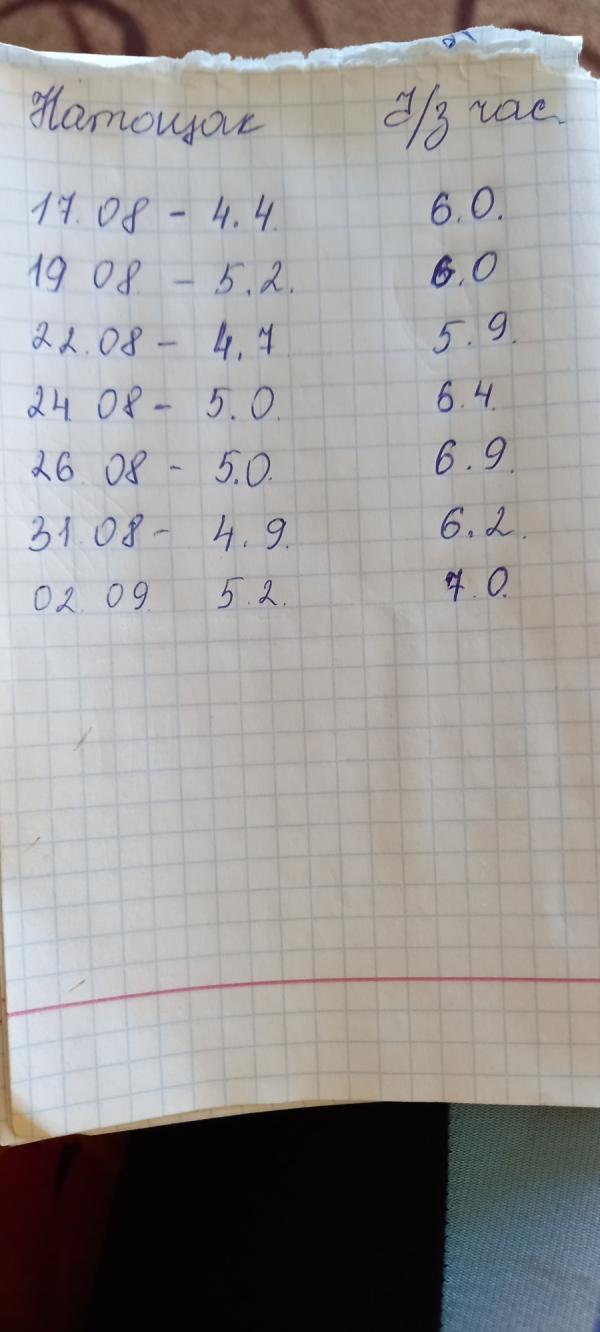 Натощак Ч/з час.
17.08 - 4.4. 6.0.
19 08. - 5.2. 6.0
22.08 - 4.7 5.9.
24. 08 - 5.0. 6.4.
26. 08 - 5.0. 6.9.
31.08 - 4.9. 6.2.
02. 09. 5.2. 7.0.